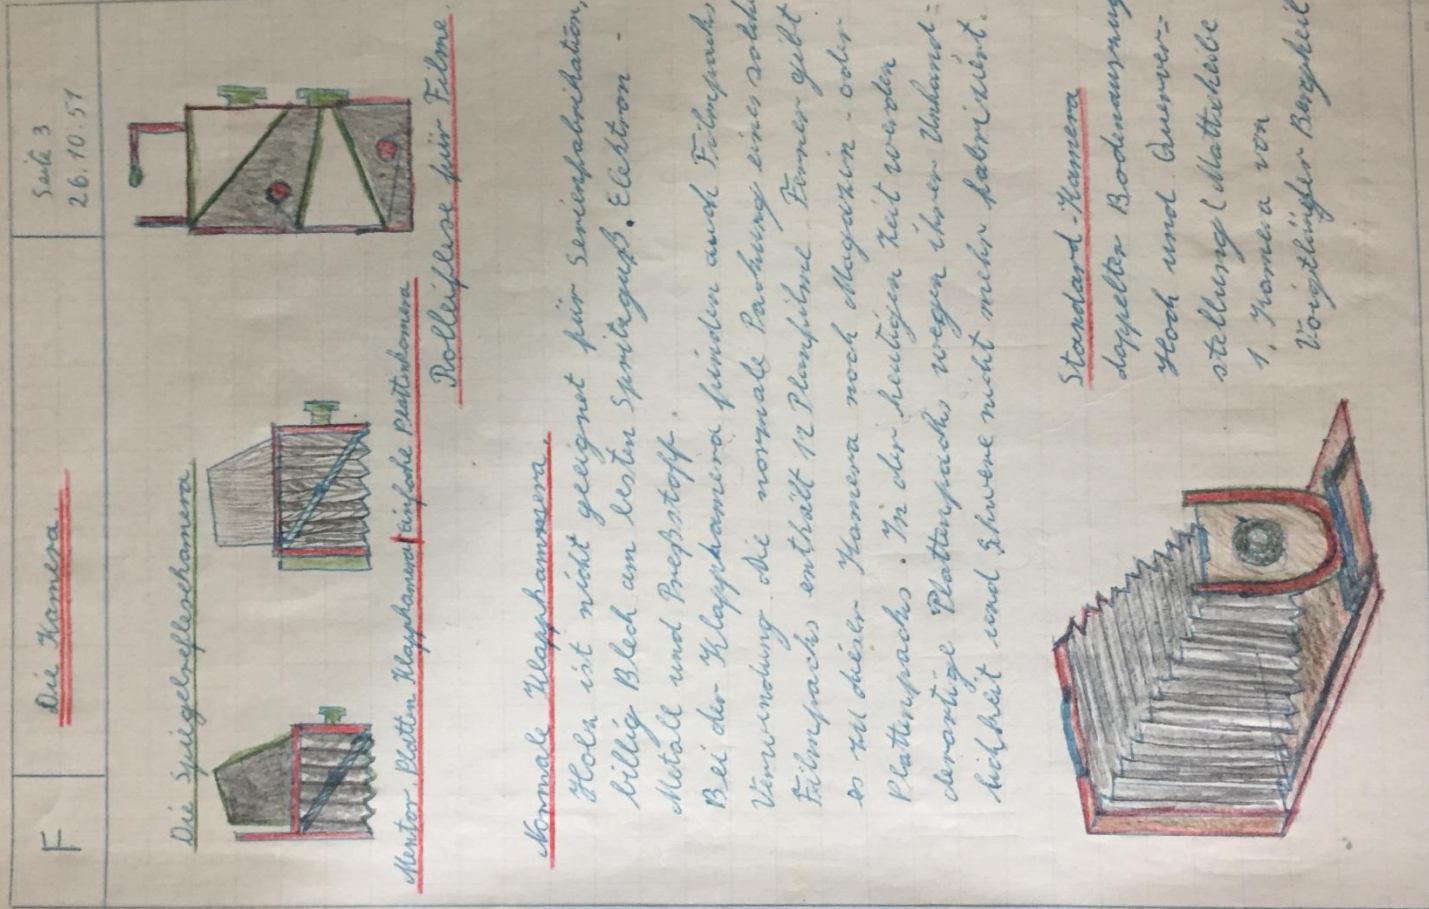 F
Die Kamera.
Seite 3
26.10.51
Die Spiegelreflexkamera
Mentor Platten Klappkamera
einfache Plattenkamera
Rolleiflex für Filme.
Normale Klappkammera
Holz ist nicht geeignet für Serienfabrikation,
billig Blech am besten Spritzguß. Elektron-
Metall und Preßstoff.
Bei der Klappkamera finden auch Filmpacks
Verwendung. Die normale Packung eines solch
Filmpacks enthält 12 Planfilme. Ferner gibt
es zu dieser Kamera noch Magazin- oder
Plattenpacks. In der heutigen Zeit werden
derartige Plattenpacks wegen ihrer Unhand-
lichkeit und Schwere nicht mehr fabriziert.
Standard-Kamera
doppelter Bodenauszug
Hoch und Querver-
stellung (Mattscheibe
1. Kamera von
Voigtländer Bergheil